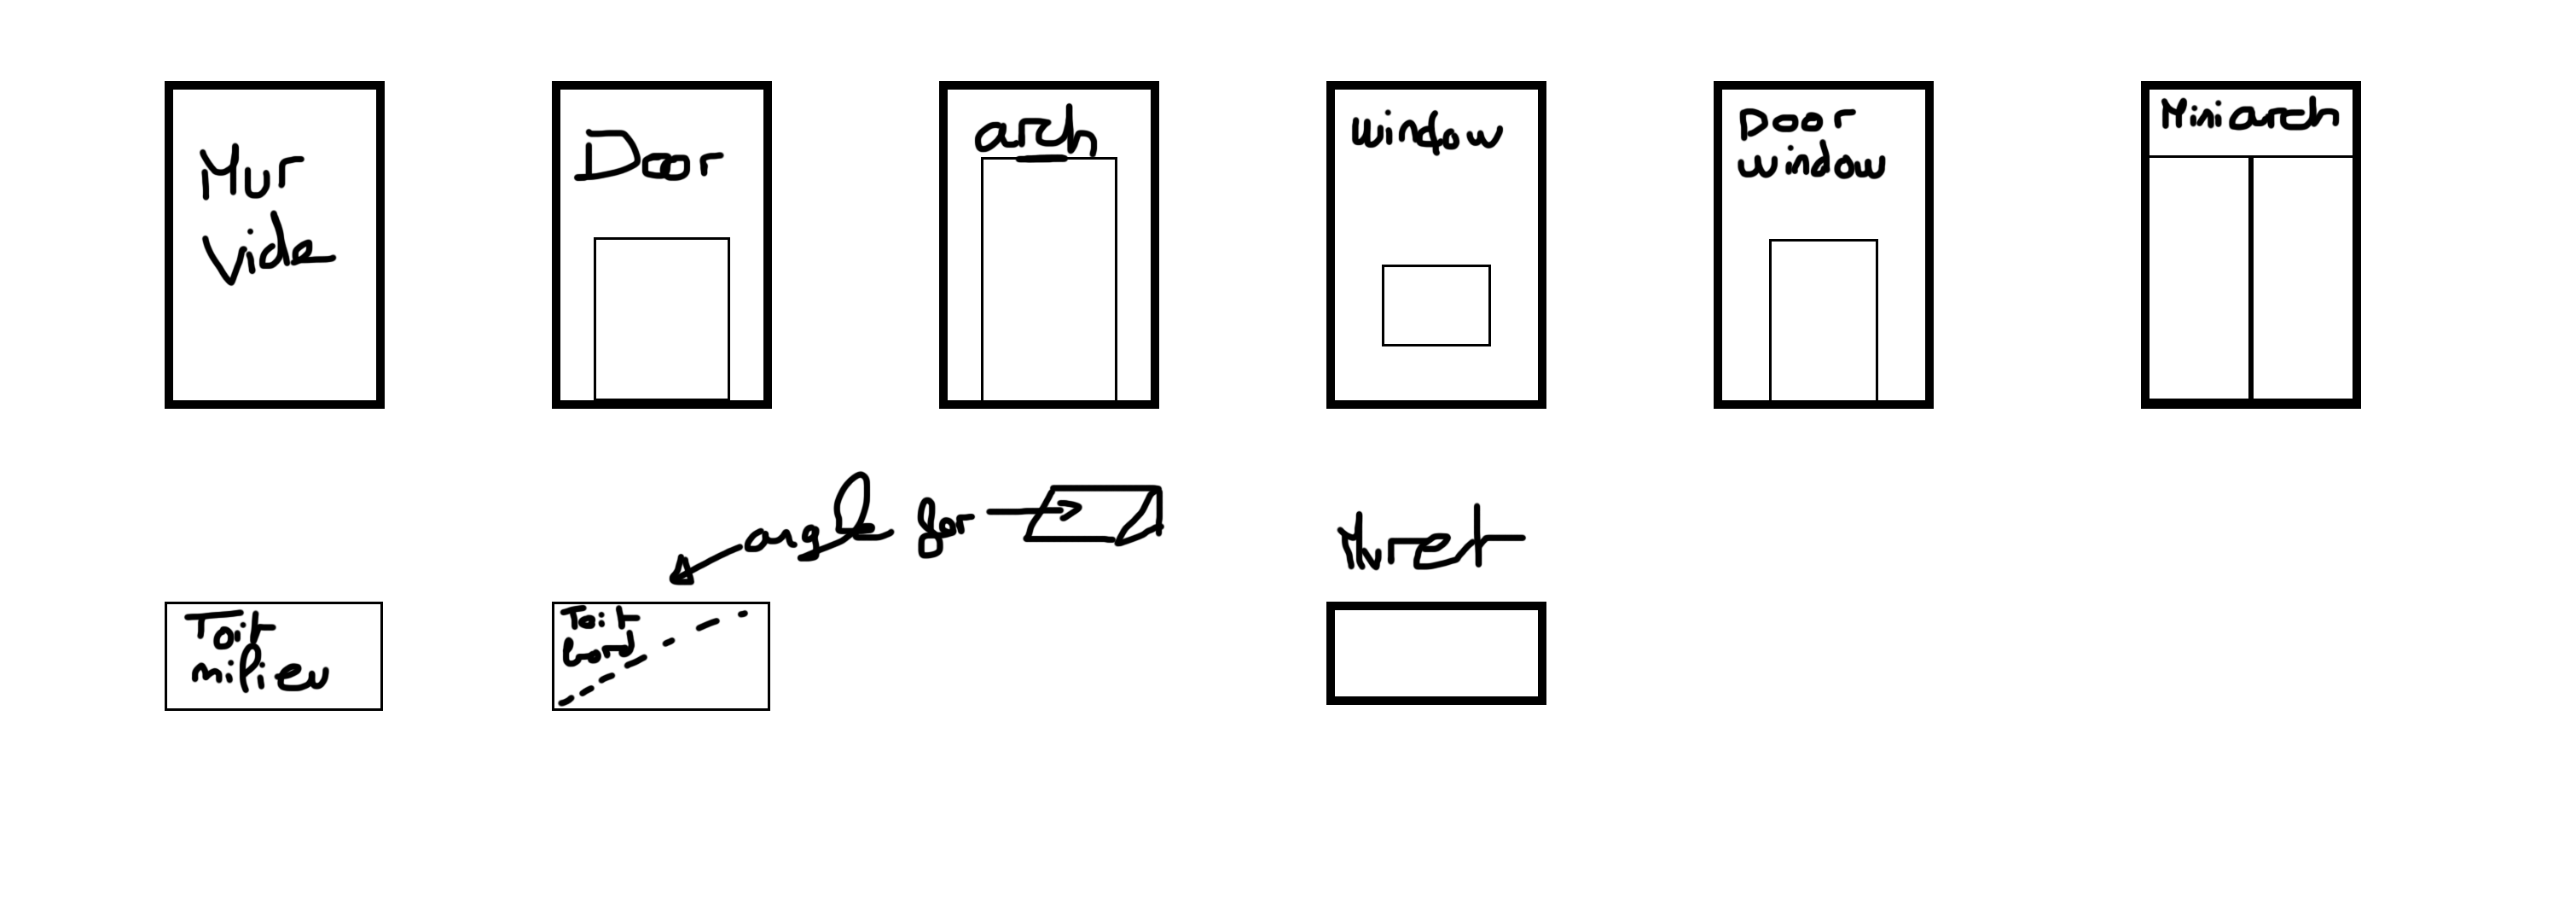 Mur
Vide
Door
arch
window
Door
window
Mini arch
angle for
Muret
Toit
milieu
Toit
bord